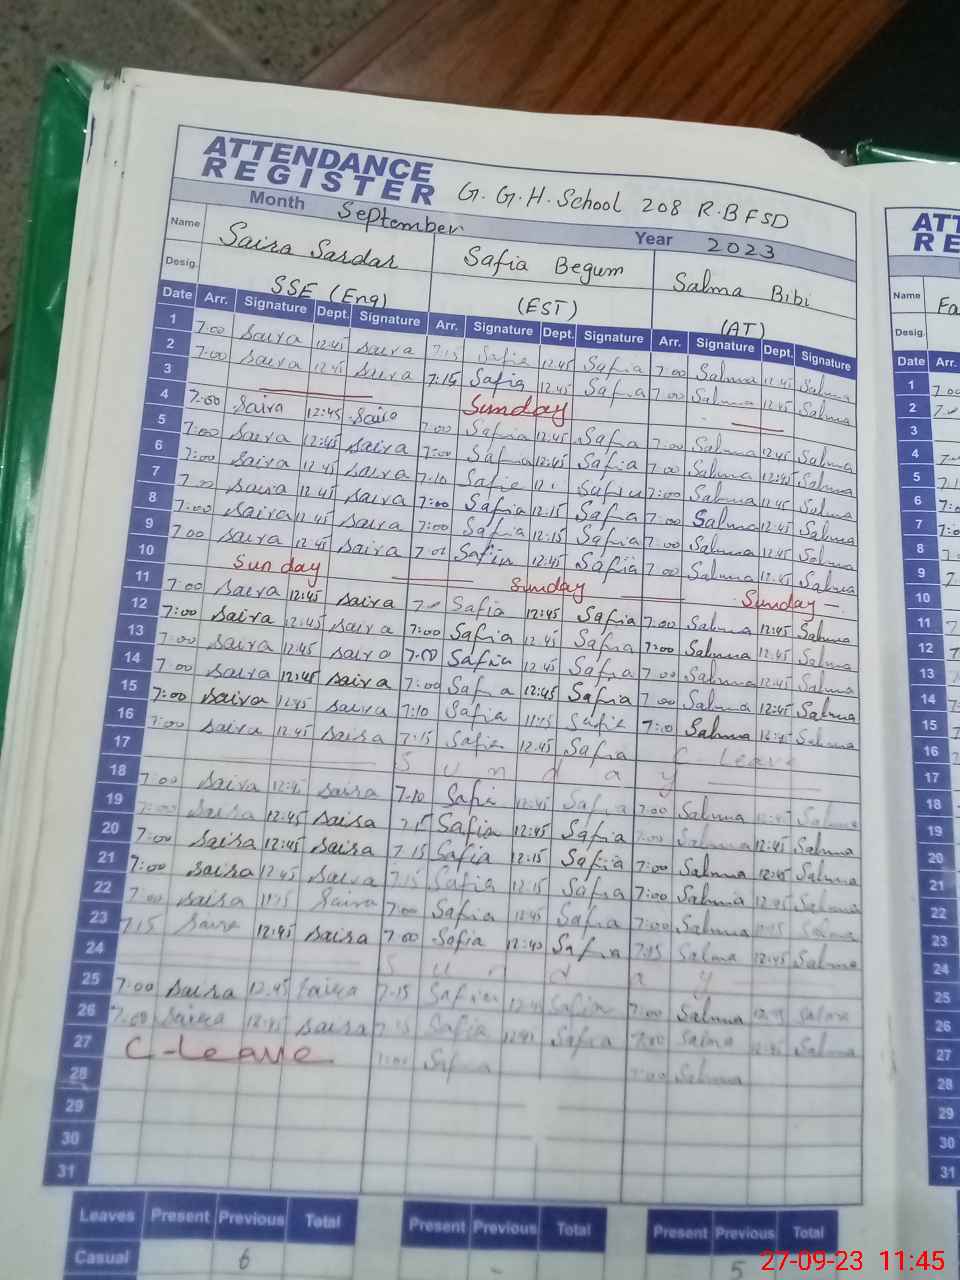 ATTENDANCE
REGISTER
G. G. H. School 208 R.B FSD
Month September Year 2023
Name Saira Sardar Safia Begum Salma Bibi
Desig. SSE (Eng) (EST) (AT)
Date Arr. Signature Dept. Signature Arr. Signature Dept. Signature Arr. Signature Dept. Signature
1 7:00 Saira 12:45 Saira 7:15 Safia 12:45 Safia 7:00 Salma 12:45 Salma
2 7:00 Saira 12:45 Saira 7:15 Safia 12:45 Safia 7:00 Salma 12:45 Salma
3 Sunday
4 7:00 Saira 12:45 Saira 7:00 Safia 12:45 Safia 7:00 Salma 12:45 Salma
5 7:00 Saira 12:45 Saira 7:00 Safia 12:45 Safia 7:00 Salma 12:45 Salma
6 7:00 Saira 12:45 Saira 7:10 Safia Safia 7:00 Salma 12:45 Salma
7 Saira 12:45 Saira 7:00 Safia 12:15 Safia 7:00 Salma 12:45 Salma
8 7:00 Saira 12:45 Saira 7:00 Safia 12:15 Safia 7:00 Salma 12:45 Salma
9 7:00 Saira 12:45 Saira Safia 12:45 Safia 7:00 Salma 12:45 Salma
10 Sunday Sunday Sunday
11 7:00 Saira 12:45 Saira Safia 12:45 Safia 7:00 Salma 12:45 Salma
12 7:00 Saira 12:45 Saira 7:00 Safia 12:45 Safia 7:00 Salma 12:45 Salma
13 7:00 Saira 12:45 Saira 7:00 Safia 12:45 Safia 7:00 Salma 12:45 Salma
14 7:00 Saira 12:45 Saira 7:00 Safia 12:45 Safia 7:00 Salma 12:45 Salma
15 7:00 Saira 12:45 Saira 7:10 Safia Safia Salma Salma
16 7:00 Saira 12:45 Saira 7:15 Safia 12:45 Safia C-Leave
17 Sunday
18 7:00 Saira Saira 7:10 Safia 12:45 Safia 7:00 Salma Salma
19 7:00 Saira 12:45 Saira 7:15 Safia 12:45 Safia 7:00 Salma 12:45 Salma
20 7:00 Saira 12:45 Saira 7:15 Safia 12:15 Safia 7:00 Salma 12:45 Salma
21 7:00 Saira 12:45 Saira 7:15 Safia 12:15 Safia 7:00 Salma Salma
22 7:00 Saira Saira 7:00 Safia 12:45 Safia 7:00 Salma Salma
23 7:15 Saira 12:45 Saira 7:00 Safia 12:40 Safia 7:15 Salma 12:45 Salma
24 Sunday
25 7:00 Saira 12:45 Saira 7:15 Safia Safia 7:00 Salma Salma
26 7:00 Saira 12:45 Saira 7:15 Safia Safia 7:00 Salma 12:45 Salma
27 C-Leave 7:00 Safia 7:00 Salma
28
29
30
31
Leaves Present Previous Total Present Previous Total Present Previous Total
Casual 6 - 5
ATT
RE
Name Fa
Desig.
Date Arr.
1
2
3
4
5
6
7
8
9
10
11
12
13
14
15
16
17
18
19
20
21
22
23
24
25
26
27
28
29
30
31
27-09-23 11:45